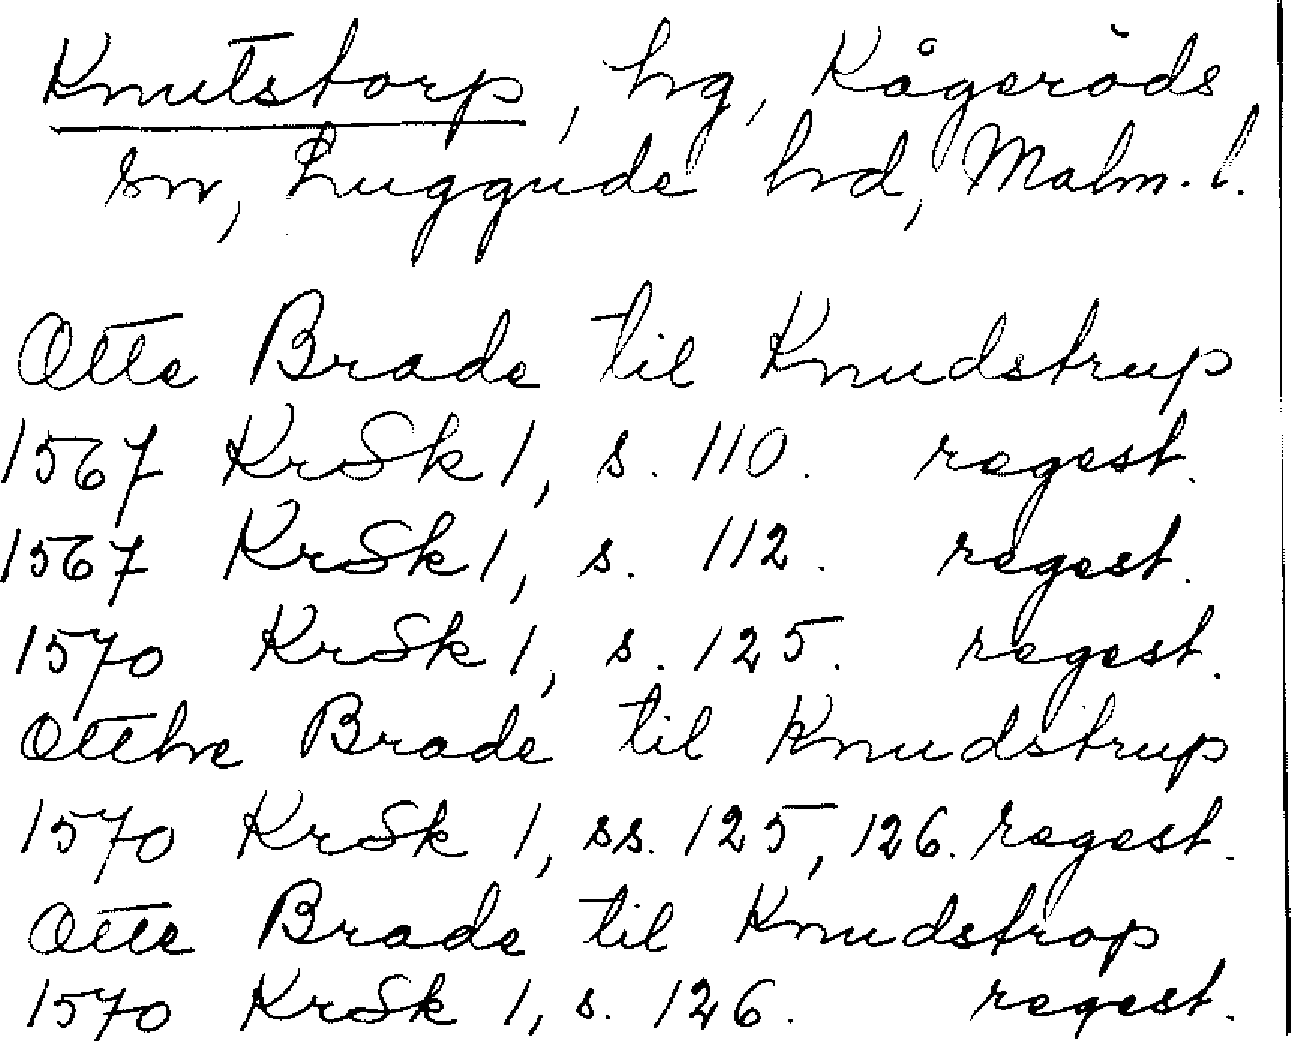 Knutstorp, hg, Kågeröds
sn, Luggude hd, Malm. l.
Otte Brade til Knudstrup
1567 KrSk 1, s. 110. regest.
1567 KrSk 1, s. 112. regest.
1570 KrSk 1, s. 125. regest.
Otthe Brade til Knudstrup
1570 KrSk 1, ss. 125, 126. regest.
Otte Brade til Knudstrop
1570 KrSk 1, s. 126. regest.